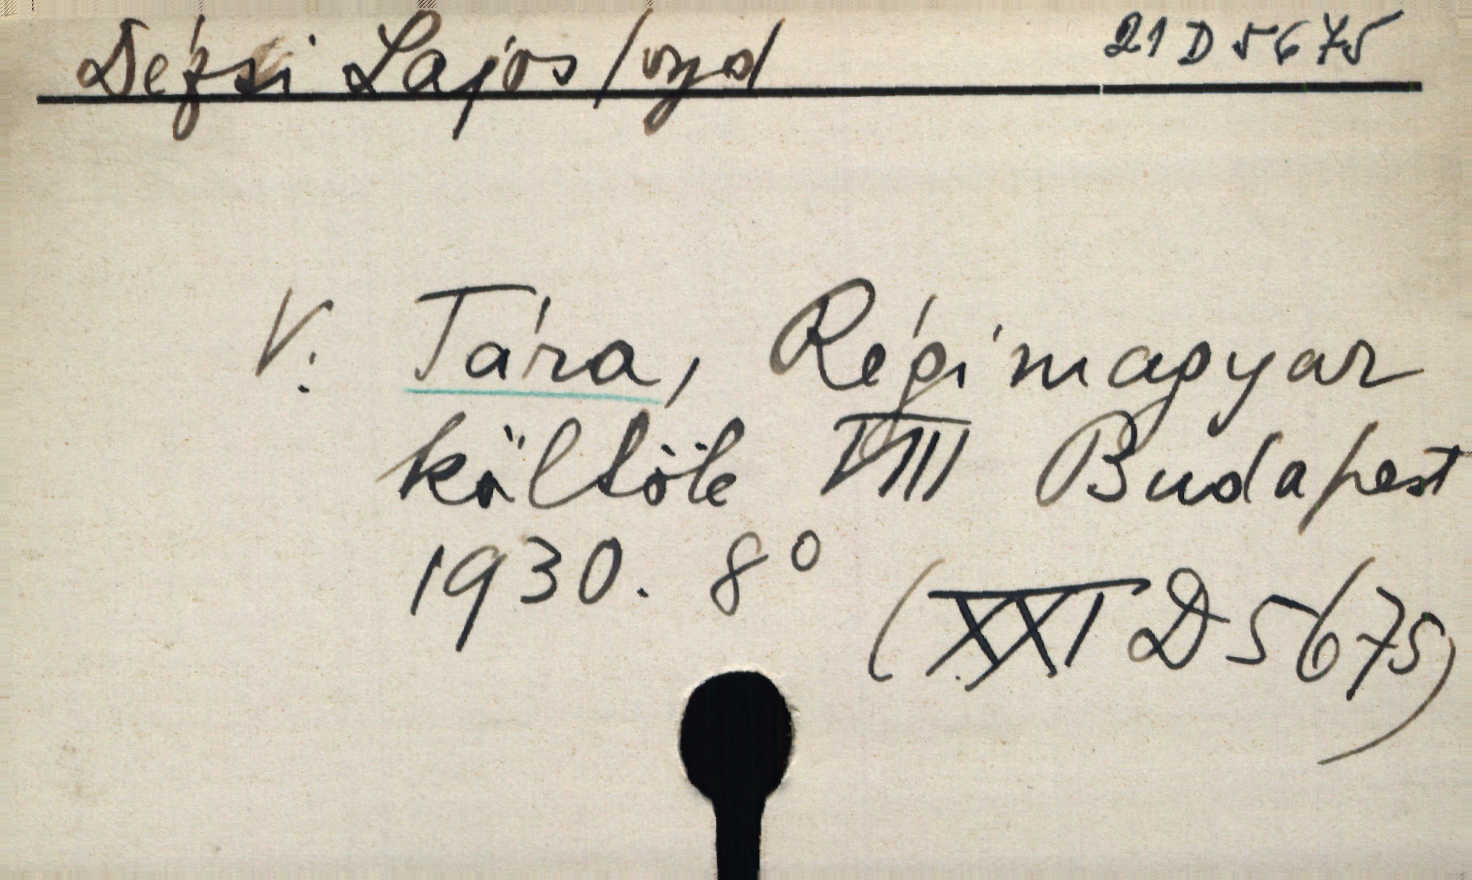 Dézsi Lajos /vyd 21 D 5675
V. Tára, Régi magyar
költök VIII Budapest
1930. 8°
(XXI D 5675)